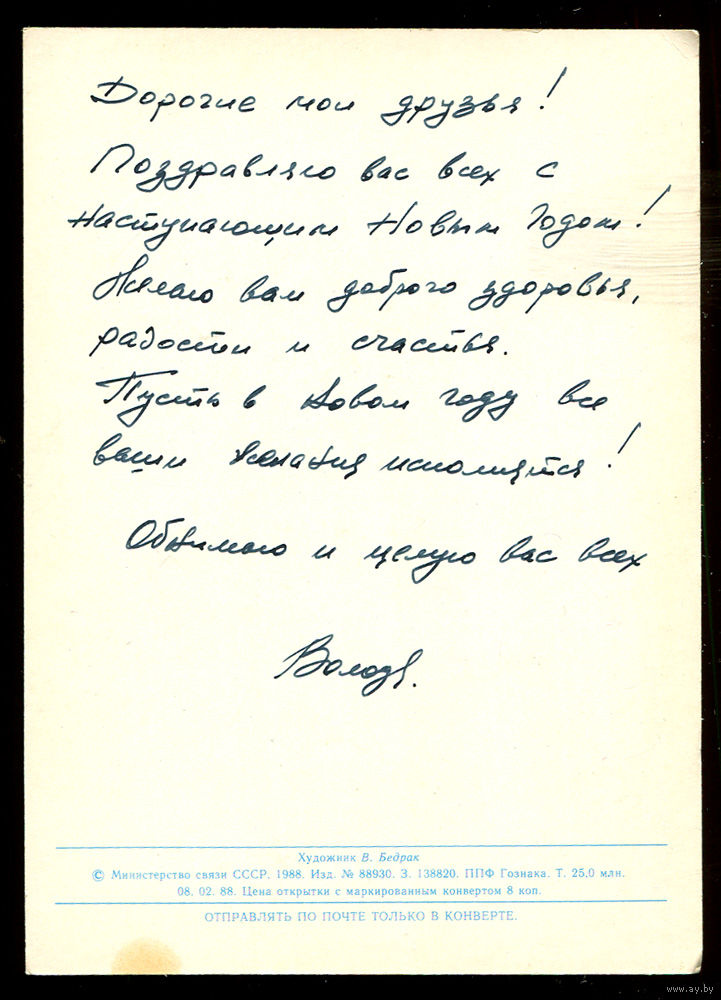 Дорогие мои друзья!
Поздравляю вас всех с
наступающим Новым Годом!
Желаю вам доброго здоровья,
радости и счастья.
Пусть в Новом году все
ваши желания исполнятся!
Обнимаю и целую вас всех
Володя.
Художник В. Бедрак
© Министерство связи СССР. 1988. Изд. № 88930. З. 138820. ППФ Гознака. Т. 25,0 млн.
08. 02. 88. Цена открытки с маркированным конвертом 8 коп.
ОТПРАВЛЯТЬ ПО ПОЧТЕ ТОЛЬКО В КОНВЕРТЕ.
www.ay.by